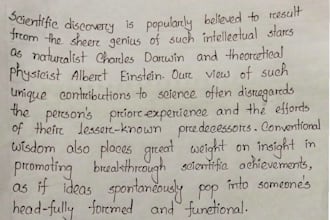 Scientific discovery is popularly believed to result
from the sheer genius of such intellectual stars
as naturalist Charles Darwin and theoretical
physicist Albert Einstein. Our view of such
unique contributions to science often disregards
the person's prior experience and the efforts
of their lesser-known predecessors. Conventional
wisdom also places great weight on insight in
promoting breakthrough scientific achievements,
as if ideas spontaneously pop into someone's
head-fully formed and functional.